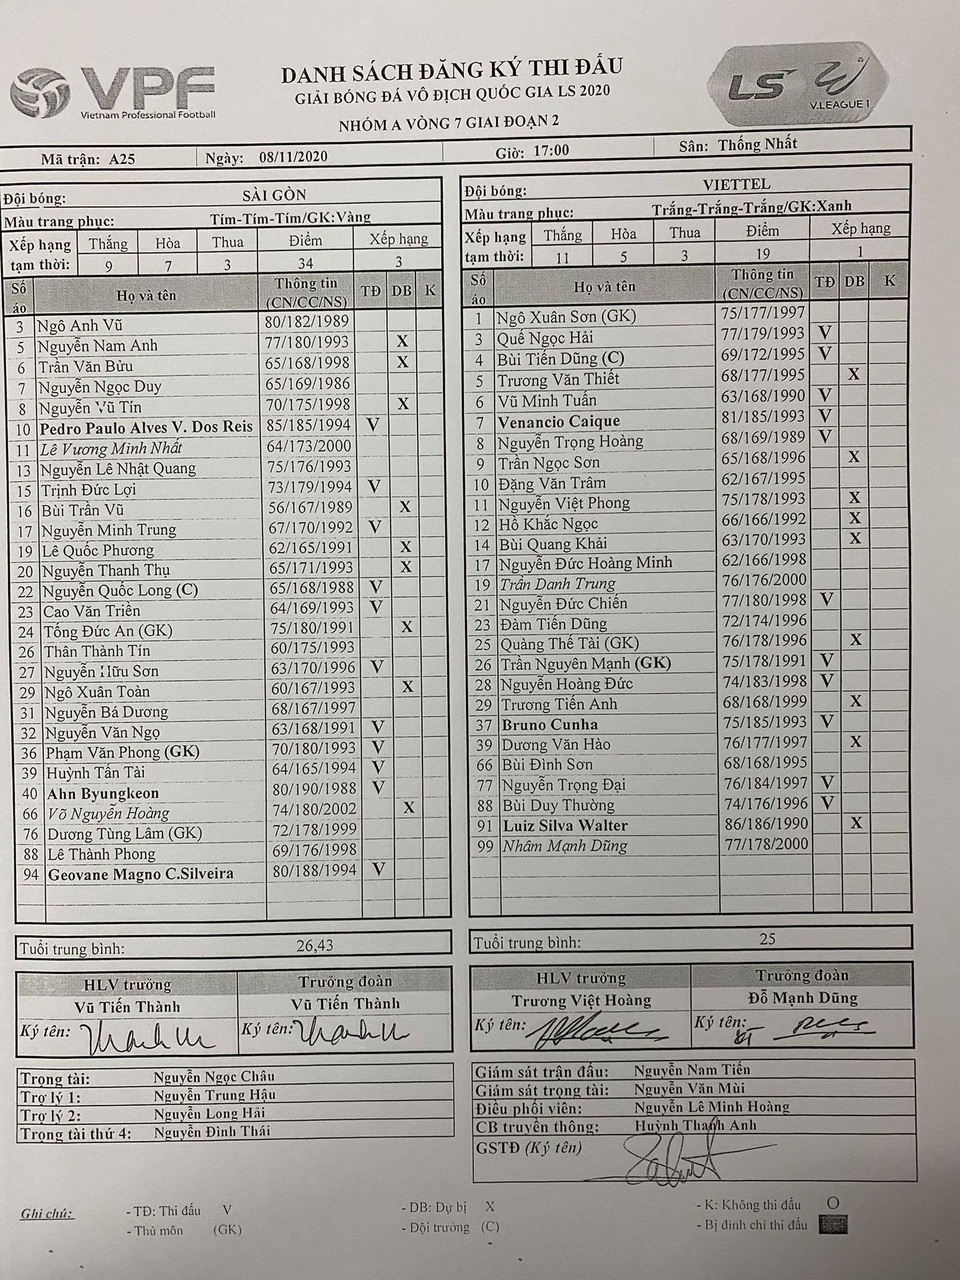 VPF
Vietnam Professional Football
DANH SÁCH ĐĂNG KÝ THI ĐẤU
GIẢI BÓNG ĐÁ VÔ ĐỊCH QUỐC GIA LS 2020
NHÓM A VÒNG 7 GIAI ĐOẠN 2
LS
V.LEAGUE 1
Mã trận: A25 Ngày: 08/11/2020 Giờ: 17:00 Sân: Thống Nhất
Đội bóng: SÀI GÒN
Màu trang phục: Tím-Tím-Tím/GK:Vàng
Xếp hạng tạm thời: Thắng Hòa Thua Điểm Xếp hạng
9 7 3 34 3
Số áo Họ và tên Thông tin (CN/CC/NS) TĐ DB K
3 Ngô Anh Vũ 80/182/1989
5 Nguyễn Nam Anh 77/180/1993 X
6 Trần Văn Bửu 65/168/1998 X
7 Nguyễn Ngọc Duy 65/169/1986
8 Nguyễn Vũ Tín 70/175/1998 X
10 Pedro Paulo Alves V. Dos Reis 85/185/1994 V
11 Lê Vương Minh Nhất 64/173/2000
13 Nguyễn Lê Nhật Quang 75/176/1993
15 Trịnh Đức Lợi 73/179/1994 V
16 Bùi Trần Vũ 56/167/1989 X
17 Nguyễn Minh Trung 67/170/1992 V
19 Lê Quốc Phương 62/165/1991 X
20 Nguyễn Thanh Thụ 65/171/1993 X
22 Nguyễn Quốc Long (C) 65/168/1988 V
23 Cao Văn Triền 64/169/1993 V
24 Tống Đức An (GK) 75/180/1991 X
26 Thân Thành Tín 60/175/1993
27 Nguyễn Hữu Sơn 63/170/1996 V
29 Ngô Xuân Toàn 60/167/1993 X
31 Nguyễn Bá Dương 68/167/1997
32 Nguyễn Văn Ngọ 63/168/1991 V
36 Phạm Văn Phong (GK) 70/180/1993 V
39 Huỳnh Tấn Tài 64/165/1994 V
40 Ahn Byungkeon 80/190/1988 V
66 Võ Nguyên Hoàng 74/180/2002 X
76 Dương Tùng Lâm (GK) 72/178/1999
88 Lê Thành Phong 69/176/1998
94 Geovane Magno C.Silveira 80/188/1994 V
Tuổi trung bình: 26,43
HLV trưởng Trưởng đoàn
Vũ Tiến Thành Vũ Tiến Thành
Ký tên: Ký tên:
Trọng tài: Nguyễn Ngọc Châu
Trợ lý 1: Nguyễn Trung Hậu
Trợ lý 2: Nguyễn Long Hải
Trọng tài thứ 4: Nguyễn Đình Thái
Đội bóng: VIETTEL
Màu trang phục: Trắng-Trắng-Trắng/GK:Xanh
Xếp hạng tạm thời: Thắng Hòa Thua Điểm Xếp hạng
11 5 3 19 1
Số áo Họ và tên Thông tin (CN/CC/NS) TĐ DB K
1 Ngô Xuân Sơn (GK) 75/177/1997
3 Quế Ngọc Hải 77/179/1993 V
4 Bùi Tiến Dũng (C) 69/172/1995 V
5 Trương Văn Thiết 68/177/1995 X
6 Vũ Minh Tuấn 63/168/1990 V
7 Venancio Caique 81/185/1993 V
8 Nguyễn Trọng Hoàng 68/169/1989 V
9 Trần Ngọc Sơn 65/168/1996 X
10 Đặng Văn Trâm 62/167/1995
11 Nguyễn Việt Phong 75/178/1993 X
12 Hồ Khắc Ngọc 66/166/1992 X
14 Bùi Quang Khải 63/170/1993 X
17 Nguyễn Đức Hoàng Minh 62/166/1998
19 Trần Danh Trung 76/176/2000
21 Nguyễn Đức Chiến 77/180/1998 V
23 Đàm Tiến Dũng 72/174/1996
25 Quàng Thế Tài (GK) 76/178/1996 X
26 Trần Nguyên Mạnh (GK) 75/178/1991 V
28 Nguyễn Hoàng Đức 74/183/1998 V
29 Trương Tiến Anh 68/168/1999 X
37 Bruno Cunha 75/185/1993 V
39 Dương Văn Hào 76/177/1997 X
66 Bùi Đình Sơn 68/168/1995
77 Nguyễn Trọng Đại 76/184/1997 V
88 Bùi Duy Thường 74/176/1996 V
91 Luiz Silva Walter 86/186/1990 X
99 Nhâm Mạnh Dũng 77/178/2000
Tuổi trung bình: 25
HLV trưởng Trưởng đoàn
Trương Việt Hoàng Đỗ Mạnh Dũng
Ký tên: Ký tên:
Giám sát trận đấu: Nguyễn Nam Tiến
Giám sát trọng tài: Nguyễn Văn Mùi
Điều phối viên: Nguyễn Lê Minh Hoàng
CB truyền thông: Huỳnh Thanh Anh
GSTĐ (Ký tên)
Ghi chú: - TĐ: Thi đấu V - DB: Dự bị X - K: Không thi đấu O
- Thủ môn (GK) - Đội trưởng (C) - Bị đình chỉ thi đấu